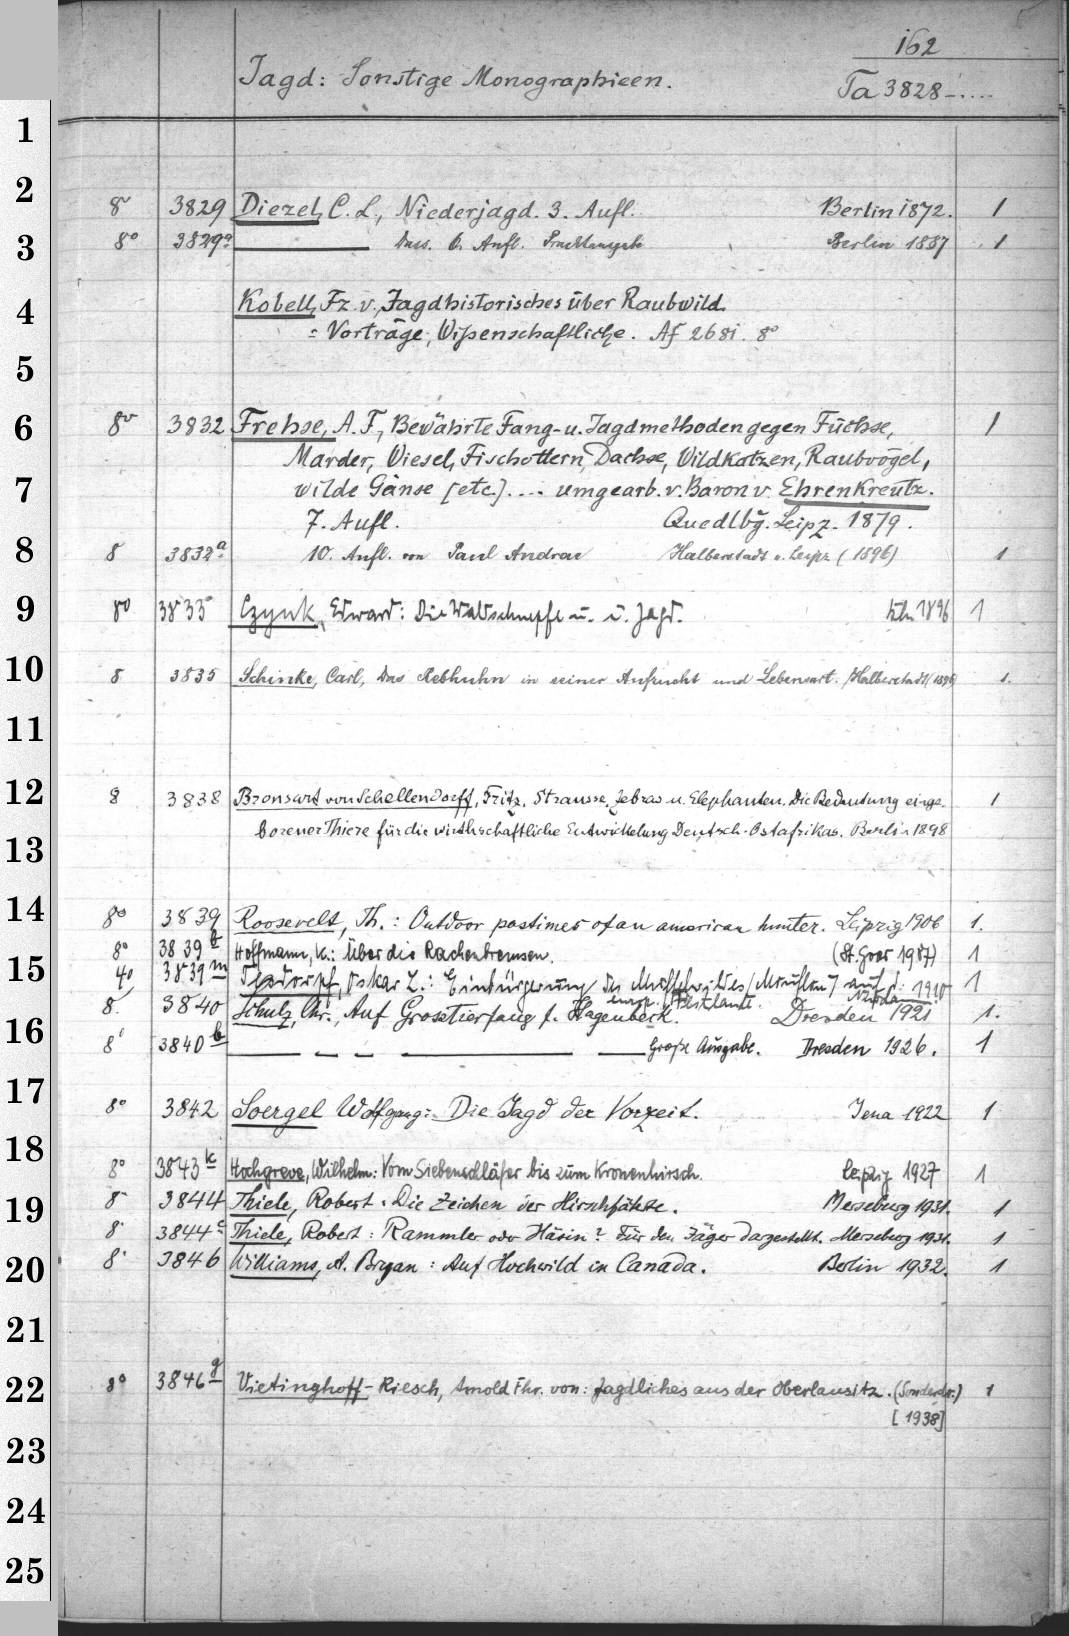 162
Jagd: Sonstige Monographieen. Ta 3828-....
1
2
8° 3829 Diezel, C. L., Niederjagd. 3. Aufl. Berlin 1872. 1
3
8° 3829a Dass. 6. Aufl. Prachtausgabe Berlin 1887 1
4
Kobell, Fz. v., Jagdhistorisches über Raubwild.
= Vorträge, Wißenschaftliche. Af 2681. 8°
5
6
8° 3832 Frehse, A. F., Bewährte Fang- u. Jagdmethoden gegen Füchse, 1
Marder, Wiesel, Fischottern, Dachse, Wildkatzen, Raubvögel,
7
wilde Gänse [etc.] .... umgearb. v. Baron v. Ehrenkreutz.
7. Aufl. Quedlbg. Leipz. 1879.
8
8 3832a 10. Aufl. von Paul Andrae Halberstadt u. Leipz. (1896) 1
9
8° 3833 Czynk, Edward: Die Waldschnepfe u. i. Jagd. 1896 1
10
8 3835 Schinke, Carl, Das Rebhuhn in seiner Aufzucht und Lebensart. Halberstadt (1896) 1.
11
12
8 3838 Bronsart von Schellendorff, Fritz, Strausse, Zebras u. Elephanten. Die Bedeutung einge- 1
borener Thiere für die wirthschaftliche Entwickelung Deutsch-Ostafrikas. Berlin 1898
13
14
8° 3839 Roosevelt, Th.: Outdoor pastimes of an american hunter. Leipzig 1906 1.
8° 3839b Hoffmann, K.: Über die Rachenbremsen. (St. Goar 1987) 1
15
4° 3839m Tesdorpf, Oskar L.: Einbürgerung des Muffelwildes (Mufflon) auf d. 1910 1
europ. Festlante.
8° 3840 Schulz, Chr., Auf Grosstierfang f. Hagenbeck. Dresden 1921 1.
16
8° 3840b — — — — — Große Ausgabe. Dresden 1926. 1
17
8° 3842 Soergel Wolfgang: Die Jagd der Vorzeit. Jena 1922 1
18
8° 3843k Hochgreve, Wilhelm: Vom Siebenschläfer bis zum Kronenhirsch. Leipzig 1927 1
19
8° 3844 Thiele, Robert. Die Zeichen der Hirschfährte. Merseburg 1931. 1
8° 3844c Thiele, Robert: Rammler oder Häsin? Für den Jäger dargestellt. Merseburg 1931. 1
20
8° 3846 Williams, A. Bryan: Auf Hochwild in Canada. Berlin 1932. 1
21
22
8° 3846g Vietinghoff-Riesch, Arnold Fhr. von: Jagdliches aus der Oberlausitz. (Sonderdr.) 1
[1938]
23
24
25